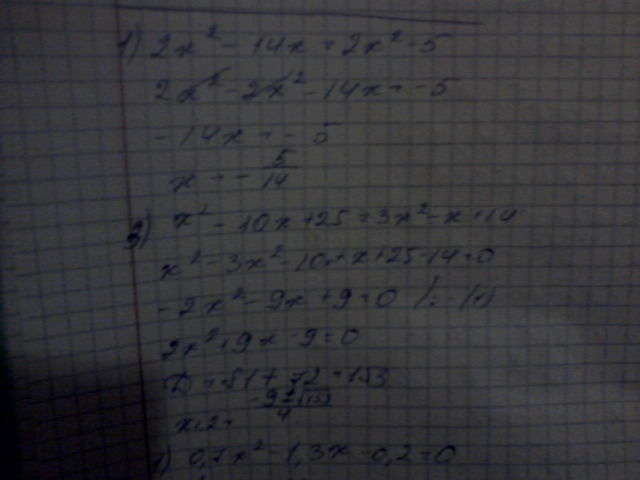 1) 2x² - 14x = 2x² - 5
2x² - 2x² - 14x = -5
-14x = -5
x = - 5/14
x² - 10x + 25 = 3x² - x + 14
x² - 3x² - 10x + x + 25 - 14 = 0
-2x² - 9x + 9 = 0 /: (-1)
2x² + 9x - 9 = 0
D = 81 + 72 = 153
x₁,₂ =
0,7x² - 1,3x - 0,2 = 0